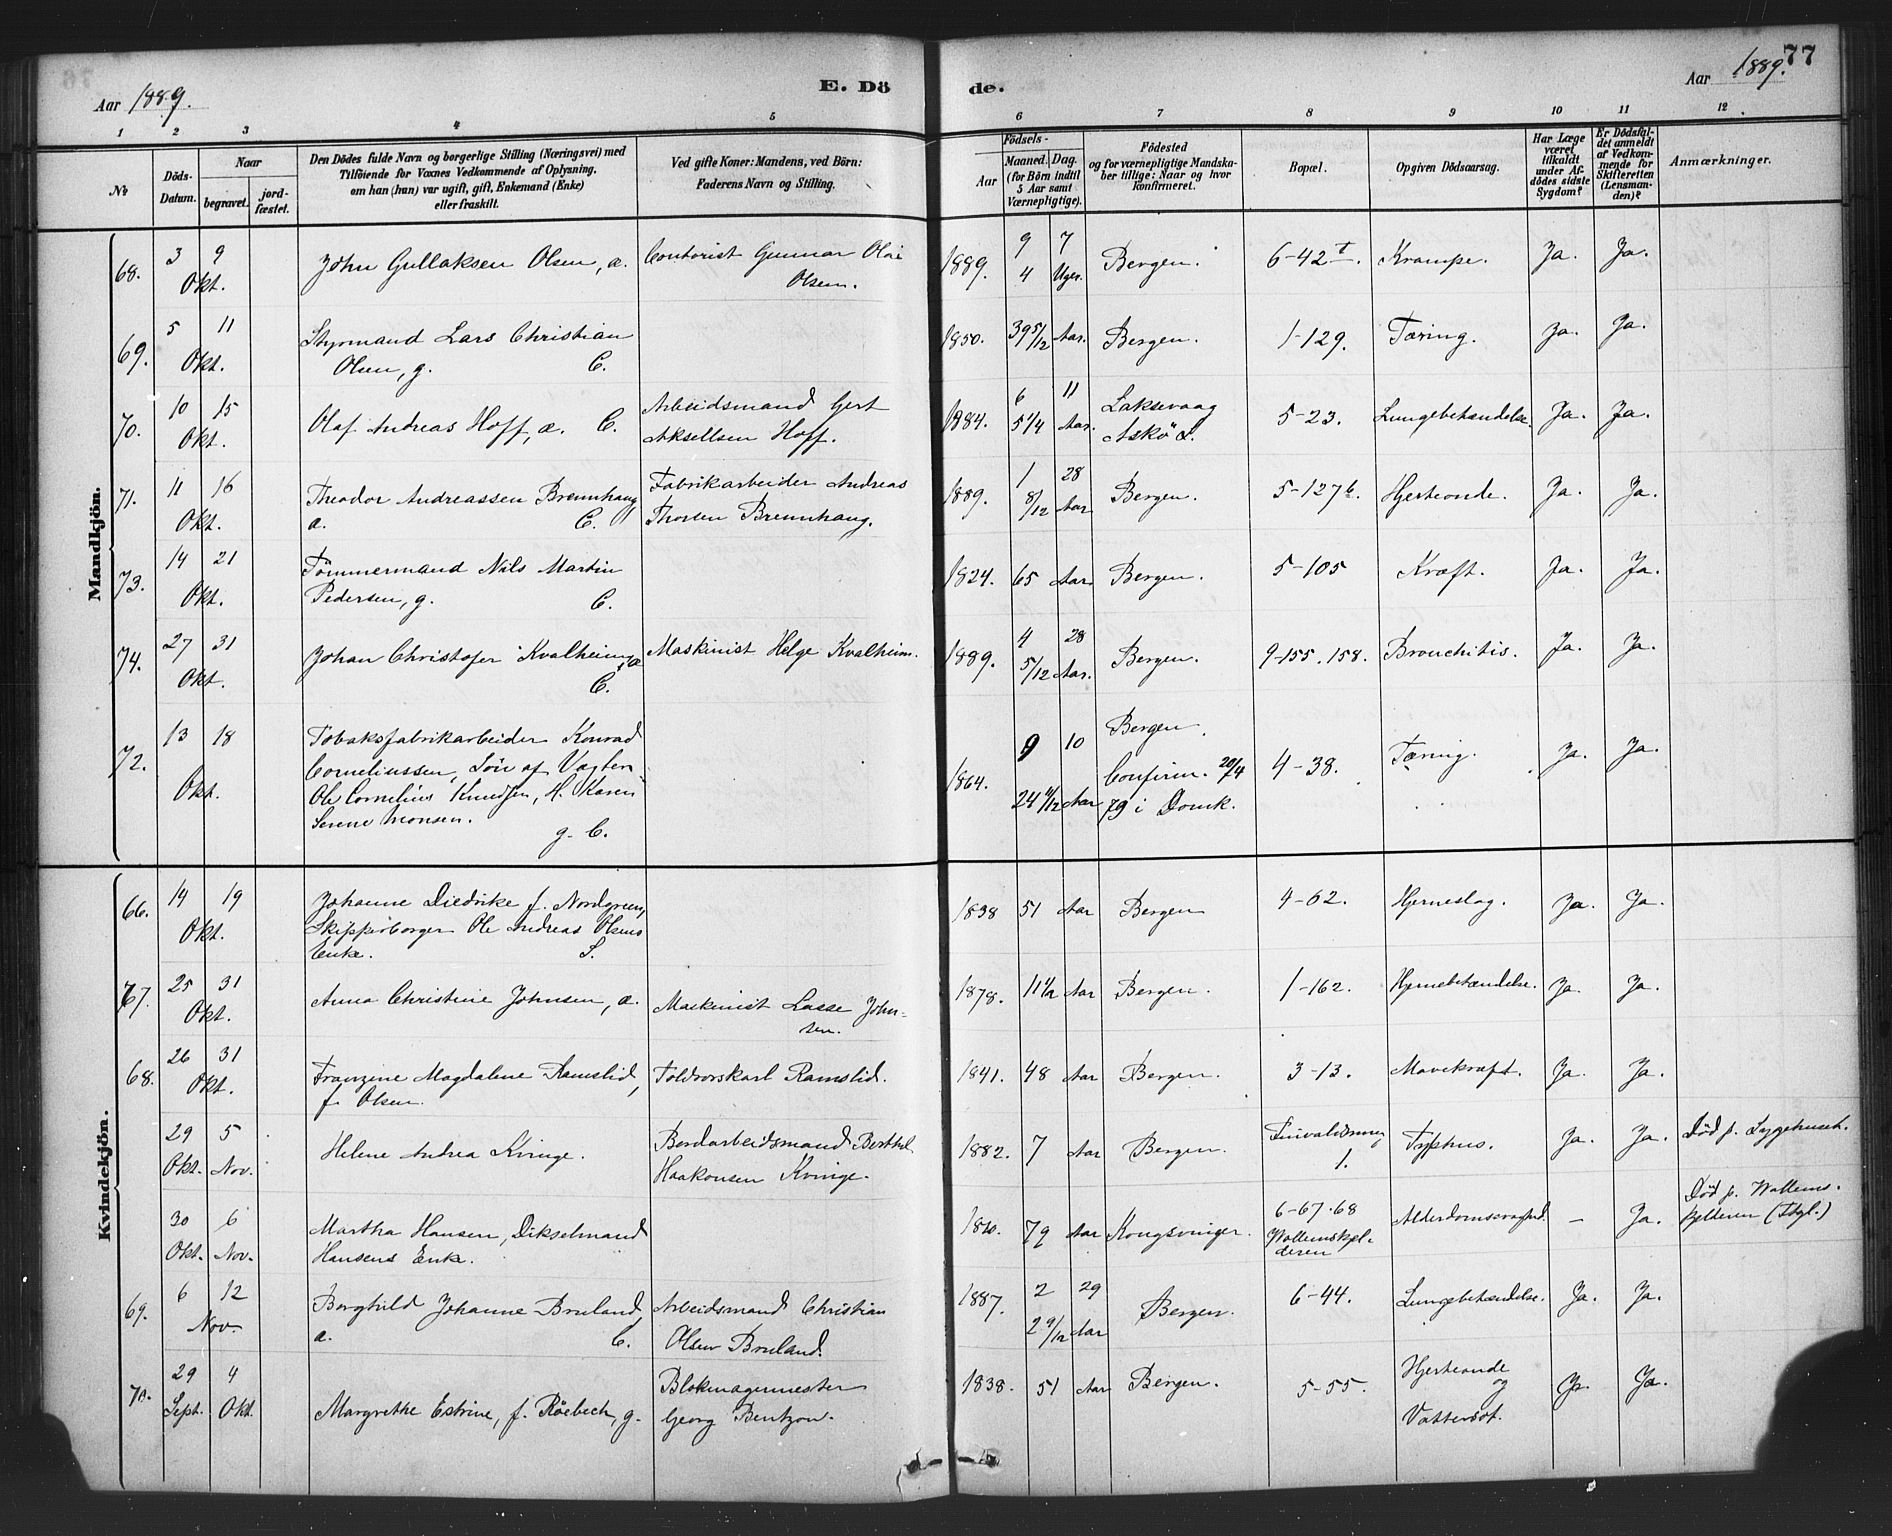 Aar 1889.
E. Dö
de.
Aar 1889.
77
1 2 3 4 5 6 7 8 9 10 11 12
No
Döds-
Datum.
Naar
begravet.
jord-
fæstet.
Den Dödes fulde Navn og borgerlige Stilling (Næringsvei) med
Tilföiende for Voxnes Vedkommende af Oplysning,
om han (hun) var ugift, gift, Enkemand (Enke)
eller fraskilt.
Ved gifte Koner: Mandens, ved Börn:
Faderens Navn og Stilling.
Födsels-
Aar
Maaned. Dag.
(for Börn indtil
5 Aar samt
Værnepligtige).
Födested
og for værnepligtige Mandska-
ber tillige: Naar og hvor
konfirmeret.
Bopæl.
Opgiven Dödsaarsag.
Har Læge
været
tilkaldt
under Af-
dödes sidste
Sygdom?
Er Dödsfal-
det anmeldt
af Vedkom-
mende for
Skifteretten
(Lensman-
den)?
Anmærkninger.
Mandkjön.
68. 3 9 Okt. John Gullaksen Olsen, a. Contorist Gunnar
Olsen. 1889. 9 7 4 Uger. Bergen. 6-42 Krampe. Ja. Ja.
69. 5 11 Okt. Styrmand Lars Christian
Olsen, g. C. 1850. 39 5/12 Aar. Bergen. 1-129. Tæring. Ja. Ja.
70. 10 15 Okt. Olaf Andreas Hoff, a. C. Arbeidsmand Gert
Aksellsen Hoff. 1884. 6 11 5 1/4 Aar. Laksevaag
Askö S. 5-23. Lungebetændelse. Ja. Ja.
71. 11 16 Okt. Theodor Andreassen Brennhaug
a. C. Fabrikarbeider Andreas
Thorsen Brennhaug. 1889. 1 28 8/12 Aar Bergen. 5-127b. Hjerteonde. Ja. Ja.
73. 14 21 Okt. Tömmermand Nils Martin
Pedersen, g. C. 1824. 65 Aar. Bergen. 5-105 Kræft. Ja. Ja.
74. 27 31 Okt. Johan Christofer Kvalheim, a
C. Maskinist Helge Kvalheim. 1889. 4 28 5/12 Aar. Bergen. 9-155.158. Bronchitis. Ja. Ja.
72. 13 18 Okt. Tobaksfabrikarbeider Konrad
Corneliussen, Sön af Vægter
Ole Cornelius Knudsen, H. Karen
Serene Monsen.
g. C. 1864. 9 10 24 11/12 Aar Bergen.
Confirm. 20/4
79 i Domk. 4-38. Tæring. Ja. Ja.
Kvindekjön.
66. 14 19 Okt. Johanne Diedrike f. Nordgreen,
Skipperborger Ole Andreas Olsens
Enke. S. 1838 51 Aar Bergen 4-62. Hjerneslag. Ja. Ja.
67. 25 31 Okt. Anna Christine Johnsen, a. Maskinist Lasse John-
sen. 1878. 11 1/2 Aar Bergen. 1-162. Hjernebetændelse. Ja. Ja.
68. 26 31 Okt. Franzine Magdalene Ramslid,
f. Olsen. Toldrorskarl Ramslid. 1841. 48 Aar Bergen. 3-13. Mavekræft. Ja. Ja.
29 Okt. 5 Nov. Helene Andrea Kvinge. Bordarbeidsmand Berthel
Haakonsen Kvinge. 1882. 7 Aar Bergen. 1. Typhus. Ja. Ja. Död p. Sygehuset.
30 Okt. 6 Nov. Martha Hansen, Dikselmand
Hansens Enke. 1810. 79 Aar Kongsvinger. 6-67.68
Wollemskjel-
deren Alderdomssvaghed. - Ja. Död p. Wollems-
kjelderen (Tlgl.)
69. 6 12 Nov. Borghild Johanne Bruland,
a. C. Arbeidsmand Christian
Olsen Bruland. 1887. 2 29 2 9/12 Aar Bergen. 6-44. Lungebetændelse. Ja. Ja.
70. 29 Sept. 4 Okt. Margrethe Estrine, f. Röebech, g. Blokmagermester
Georg Bentzon. 1838. 51 Aar Bergen. 5-55. Hjerteonde
og
Vattersot. Ja. Ja.